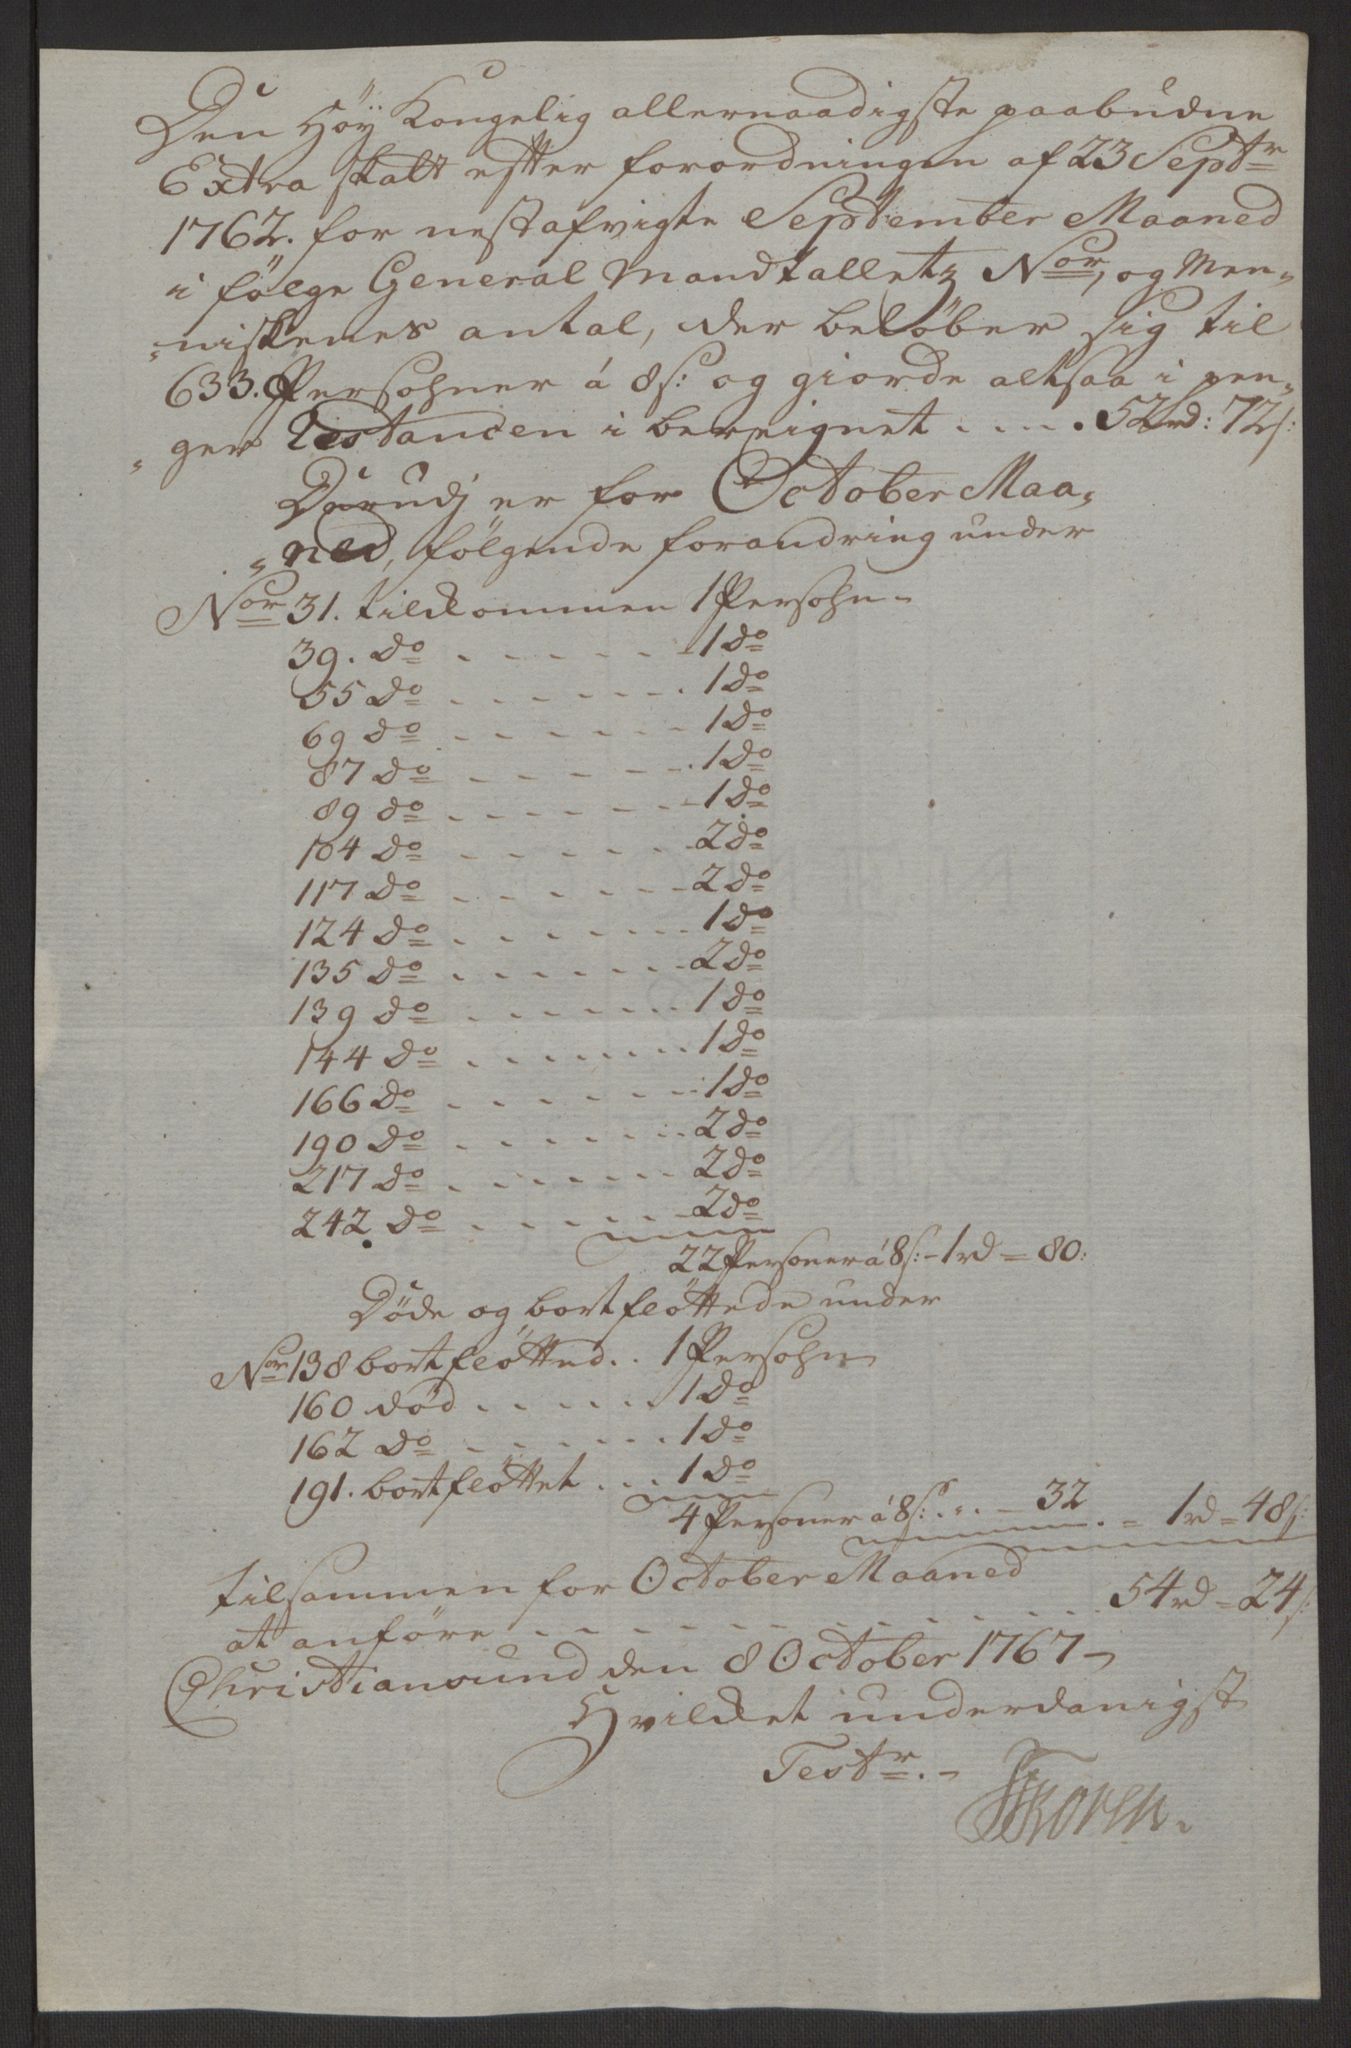 Den Höÿ Kongelig allernaadigste paabudne
Extra skatt efter forordningen af 23 Septr
1762. for nestafvigte September Maaned
i fölge General Mandtalletz Nor, og Men„
„niskenes antal, der belöber sig til
633. Persohner á 8 s: og giorde altsaa i pen„
„ger Restancen i bereignet .... 52 rd: 72 s:
Derudj er for October Maa„
„ned, fölgende forandring under
Nor 31. tilkommen 1 Persohn -
39. do ...... 1 do
55 do ...... 1 do
69 do ...... 1 do
87 do ...... 1 do
89 do ...... 1 do
104 do ...... 2 do
117 do ...... 2 do
124 do ...... 1 do
135 do ...... 2 do
139 do ...... 1 do
144 do ...... 1 do
166 do ...... 1 do
190 do ...... 2 do
217 do ...... 2 do
242 do ...... 2 do
22 Personer á 8 s: - 1 rd = 80:
Döde og bortfløttede under
Nor 138 bortfløtted .. 1 Persohn
160 død ...... 1 do
162 do ...... 1 do
191. bortfløttet ... 1 do
4 Personer á 8 s: ... - 32 . - 1 rd = 48 s:
tilsammen for October Maaned
at anföre ...... 54 rd = 24 s:
Christiansund den 8 October 1767 -
Hvilket underdanigst
Testr. -